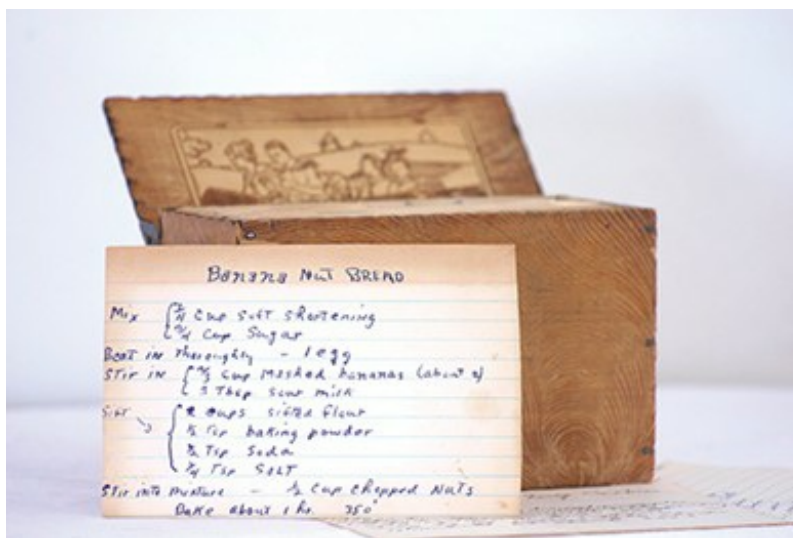 Banana Nut BREAD
Mix { ¼ Cup Soft Shortening
¾ Cup Sugar
Beat in thoroughly - 1 egg
Stir in { ⅔ Cup Mashed bananas (about 2)
3 Tbsp Sour milk
Sift { 2 cups sifted flour
½ Tsp baking powder
½ Tsp Soda
¼ Tsp SALT
Stir into mixture - ½ Cup Chopped Nuts
Bake about 1 hr. 350°